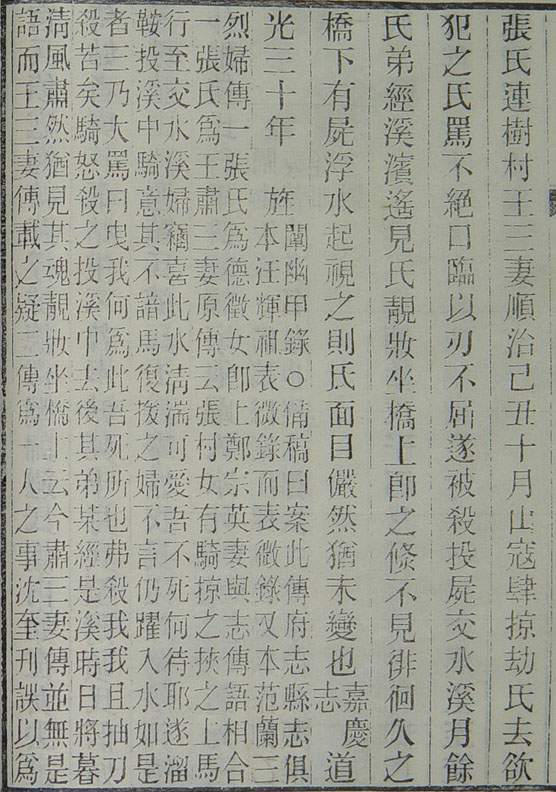 張氏連樹村王三妻順治己丑十月山寇肆掠劫氏去欲
犯之氏罵不絕口臨以刃不屈遂被殺投屍交水溪月餘
氏弟經溪濱遙見氏靚妝坐橋上卽之倏不見徘徊久之
橋下有屍浮水起視之則氏面目儼然猶未變也嘉慶志道
光三十年 旌
闡幽甲錄○備稿曰案此傳府志縣志俱
本汪輝祖表微錄而表微錄又本范蘭三
烈婦傳一張氏爲德徵女卽上鄭宗英妻與志傳語相合
一張氏爲王肅三妻原傳云張村女有騎掠之挾之上馬
行至交水溪婦竊喜此水清湍可愛吾不死何待耶遂溜
鞍投溪中騎意其不諳馬復撥之婦不言仍躍入水如是
者三乃大罵曰曳我何爲此吾死所也弗殺我我且抽刀
殺若矣騎怒殺之投溪中去後其弟某經是溪時日將暮
清風肅然猶見其魂靚妝坐橋上云今肅三妻傳並無是
語而王三妻傳載之疑二傳爲一人之事沈奎刊誤以爲